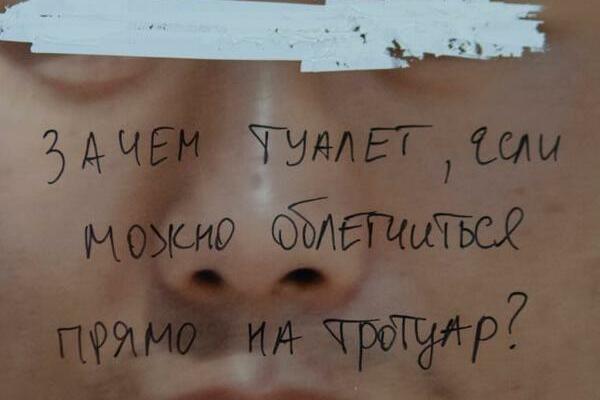 ЗАЧЕМ ТУАЛЕТ, если
можно облегчиться
прямо на тротуар?